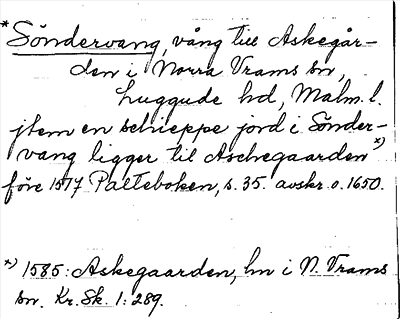 * Söndervang, vång till Askegår-
den i Norra Vrams sn,
Luggude hd, Malm. l.
jtem en schieppe jord i Sönder-
vang ligger til Aschegaarden *)
före 1577 Palteboken, s. 35. avskr. o. 1650.
*) 1585: Askegaarden, hn i N. Vrams
sn. Kr. Sk. 1: 289.